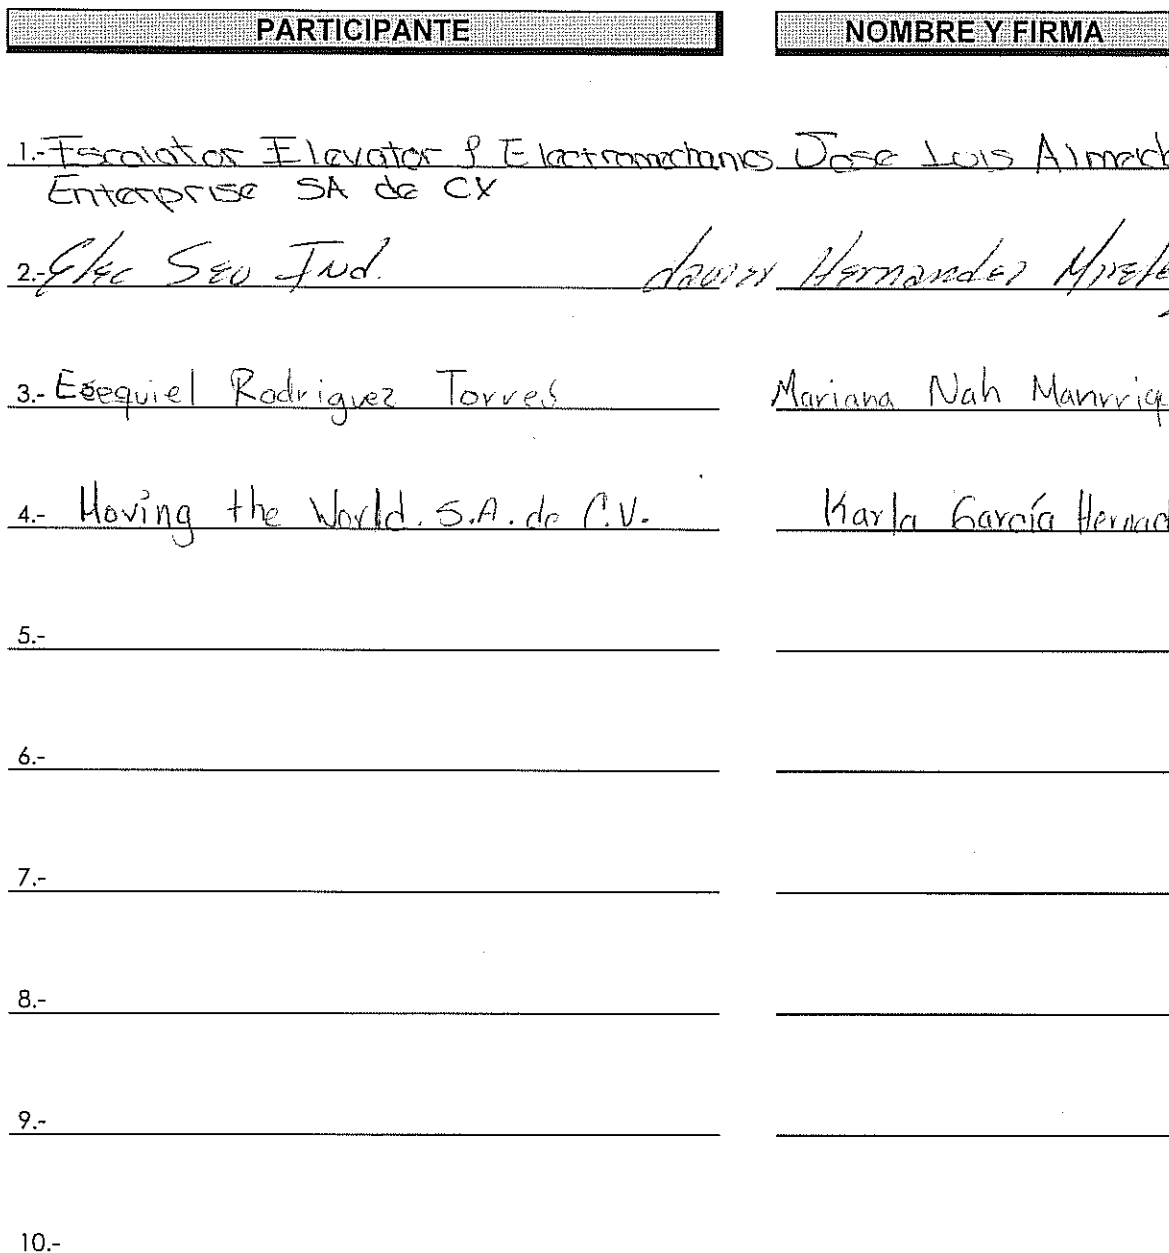 PARTICIPANTE NOMBRE Y FIRMA
1.- Escalator Elevator & Electromechanics Jose Luis Almeid
Enterprise SA de CV
2.- Elec Seu Ind. Javier Hernandez Mirele
3.- Esequiel Rodriguez Torres Mariana Nah Manrriqu
4.- Moving the World. S.A. de C.V. Karla García Hernad
5.-
6.-
7.-
8.-
9.-
10.-